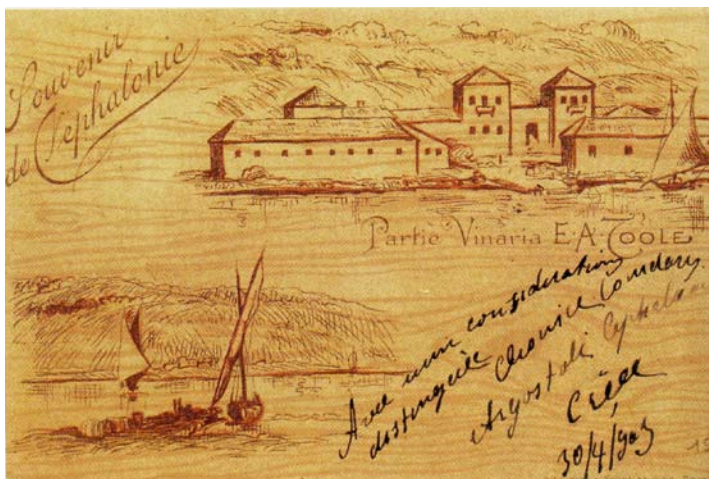 Souvenir
de Cephalonie
Partie Vinaria E.A. TOOLE
Avec mon consideration
distinguée
Argostoli Cephalonie
30/4/903